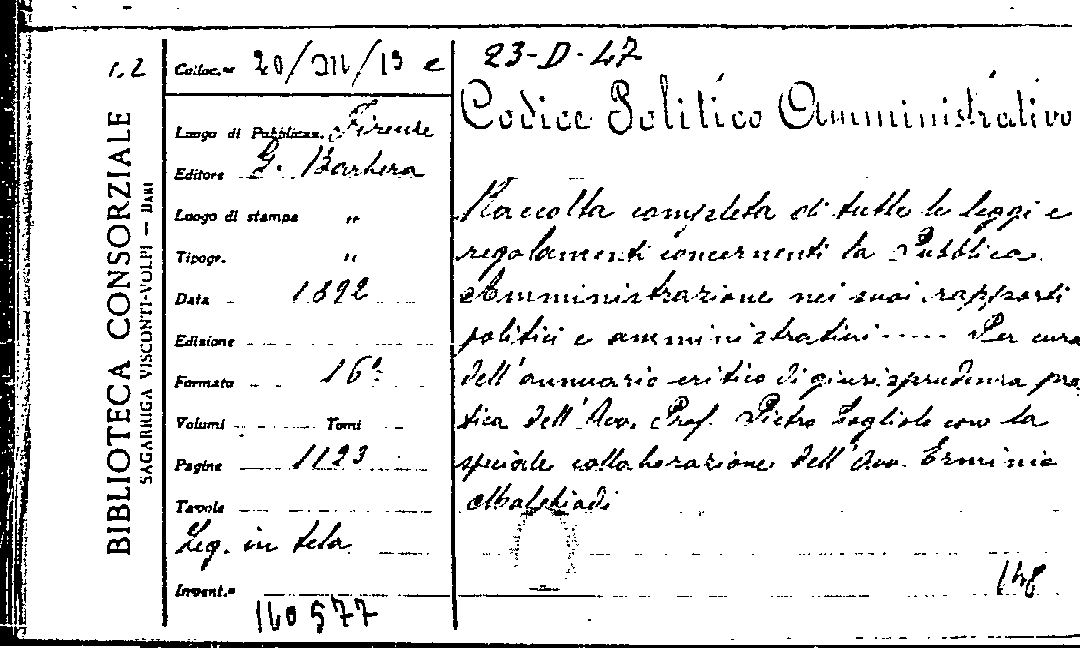 1.2
BIBLIOTECA CONSORZIALE
SAGARRIGA VISCONTI-VOLPI — BARI
Colloc.ne 20/III/13 e
Luogo di Pubblicaz. Firenze
Editore G. Barbera
Luogo di stampa "
Tipogr. "
Data 1892
Edizione
Formato 16°
Volumi Tomi
Pagine 1123
Tavole
Leg. in tela
Invent.e
160577
23-D-47
Codice Politico Amministrativo
Raccolta completa di tutte le leggi e
regolamenti concernenti la Pubblica
Amministrazione nei suoi rapporti
politici e amministrativi ..... Per cura
dell'annuario critico di giurisprudenza pra
tica dell'Avv. Prof. Pietro Cogliolo con la
speciale collaborazione dell'Avv. Erminio
Malchiodi
148